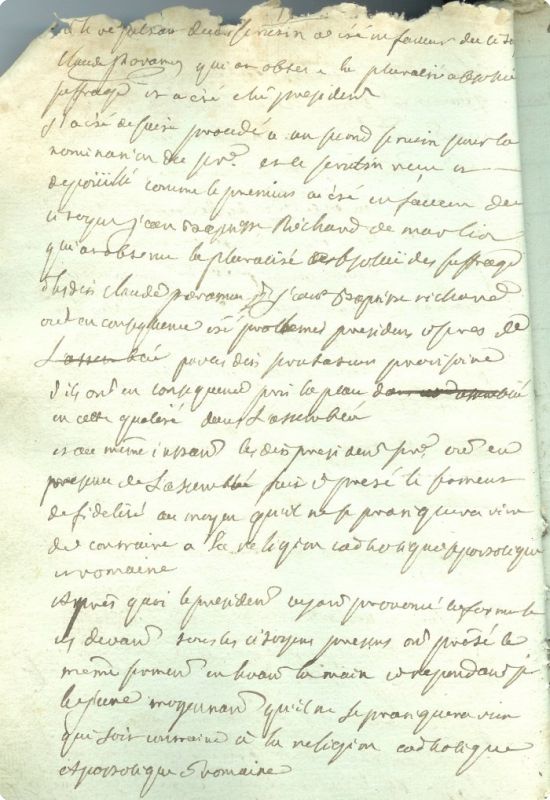 du scrutin a été en faveur du
Claude qui at obtenu la pluralité absolue
suffrage et a été élu président
Il a été de suite procédé a un second scrutin pour la
nomination du et le scrutin reçu et
depoüillé comme le premier a été en faveur du
citoyen jean Baptiste Richard de
qui at obtenu la pluralité absolüe des suffrage
Claude Jean Baptiste richard
ont en consequence été president et de
L'assemblée par provisoire
ils ont en consequence pris la place dans
en cette qualité dans L'assemblée
et au même instant lesdits president ont en
presence de L'assemblée fait et preté le serment
de fidelité au moyen qu'il ne se pratiquera rien
de contraire a la religion catholique apostolique
et romaine
Apprés quoi le president ayant prononcé la formule
devant tous les citoyens presens ont preté le
même serment en levant la main et repondant je
le jure moyennant qu'il ne se pratiquera rien
qui soit contraire a la religion catholique
Apostolique et romaine